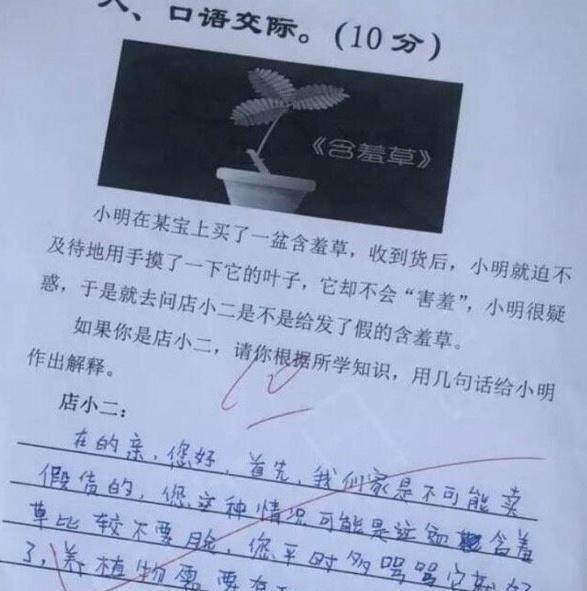 、口语交际。(10分)
《含羞草》
小明在某宝上买了一盆含羞草，收到货后，小明就迫不
及待地用手摸了一下它的叶子，它却不会“害羞”，小明很疑
惑，于是就去问店小二是不是给发了假的含羞草。
如果你是店小二，请你根据所学知识，用几句话给小明
作出解释。
10
店小二：
在的亲，您好，首先，我们家是不可能卖
假货的，您这种情况可能是这颗含羞
草比较不要脸，您平时多骂骂它就好
了，养植物需要有